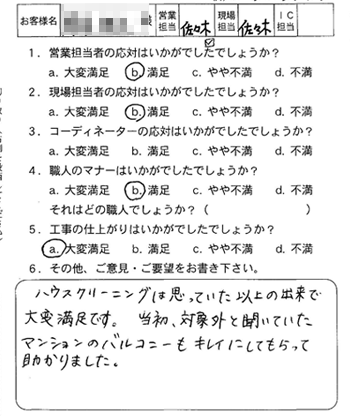 お客様名 様 営業担当 佐々木 現場担当 佐々木 IC担当
1．営業担当者の応対はいかがでしたでしょうか？
a. 大変満足 b. 満足 c. やや不満 d. 不満
2．現場担当者の応対はいかがでしたでしょうか？
a. 大変満足 b. 満足 c. やや不満 d. 不満
3．コーディネーターの応対はいかがでしたでしょうか？
a. 大変満足 b. 満足 c. やや不満 d. 不満
4．職人のマナーはいかがでしたでしょうか？
a. 大変満足 b. 満足 c. やや不満 d. 不満
それはどの職人でしょうか？（ ）
5．工事の仕上がりはいかがでしたでしょうか？
a. 大変満足 b. 満足 c. やや不満 d. 不満
6．その他、ご意見・ご要望をお書き下さい。
ハウスクリーニングは思っていた以上の出来で
大変満足です。 当初、対象外と聞いていた
マンションのバルコニーもキレイにしてもらって
助かりました。